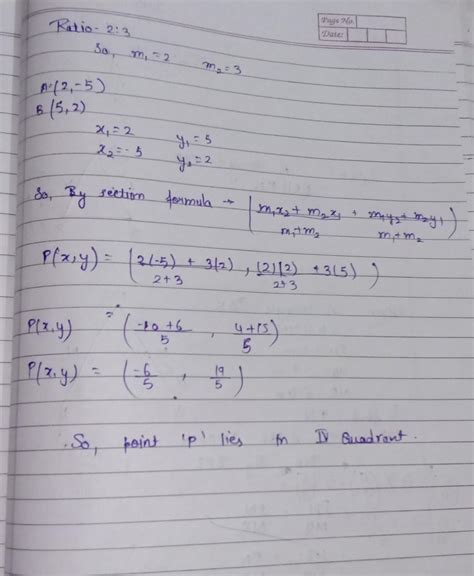 Page No.
Date:
Ratio - 2:3
So, m₁ = 2 m₂ = 3
A=(2,-5)
B (5,2)
x₁ = 2 y₁ = 5
x₂ = -5 y₂ = 2
So, By section formula → (m₁x₂ + m₂x₁ / m₁+m₂ , m₁y₂ + m₂y₁ / m₁+m₂)
P(x,y) = (2(-5) + 3(2) / 2+3 , (2)(2) + 3(5) / 2+3)
P(x,y) = (-10+6 / 5 , 4+15 / 5)
P(x,y) = (-6/5 , 19/5)
So, point 'p' lies in IV Quadrant.